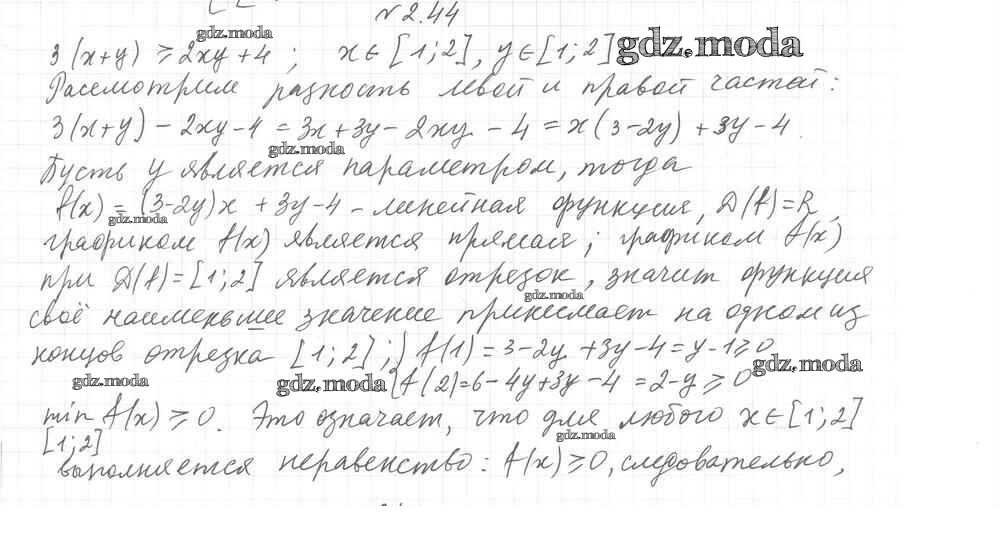 № 2.44
gdz.moda
3(x+y) ≥ 2xy+4 ; x∈[1;2], y∈[1;2] gdz.moda
Рассмотрим разность левой и правой частей:
3(x+y) - 2xy-4 = 3x+3y-2xy - 4 = x(3-2y) + 3y-4.
gdz.moda
Пусть y является параметром, тогда
f(x) = (3-2y)x + 3y-4 - линейная функция, D(f)=R,
gdz.moda
графиком f(x) является прямая; графиком f(x)
при D(f)=[1;2] является отрезок, значит функция
gdz.moda
своё наименьшее значение принимает на одном из
концов отрезка [1;2]; f(1)=3-2y+3y-4=y-1≥0
gdz.moda gdz.moda gdz.moda
f(2)=6-4y+3y-4=2-y≥0
min f(x)≥0. Это означает, что для любого x∈[1;2]
[1;2]
gdz.moda
выполняется неравенство: f(x)≥0, следовательно,